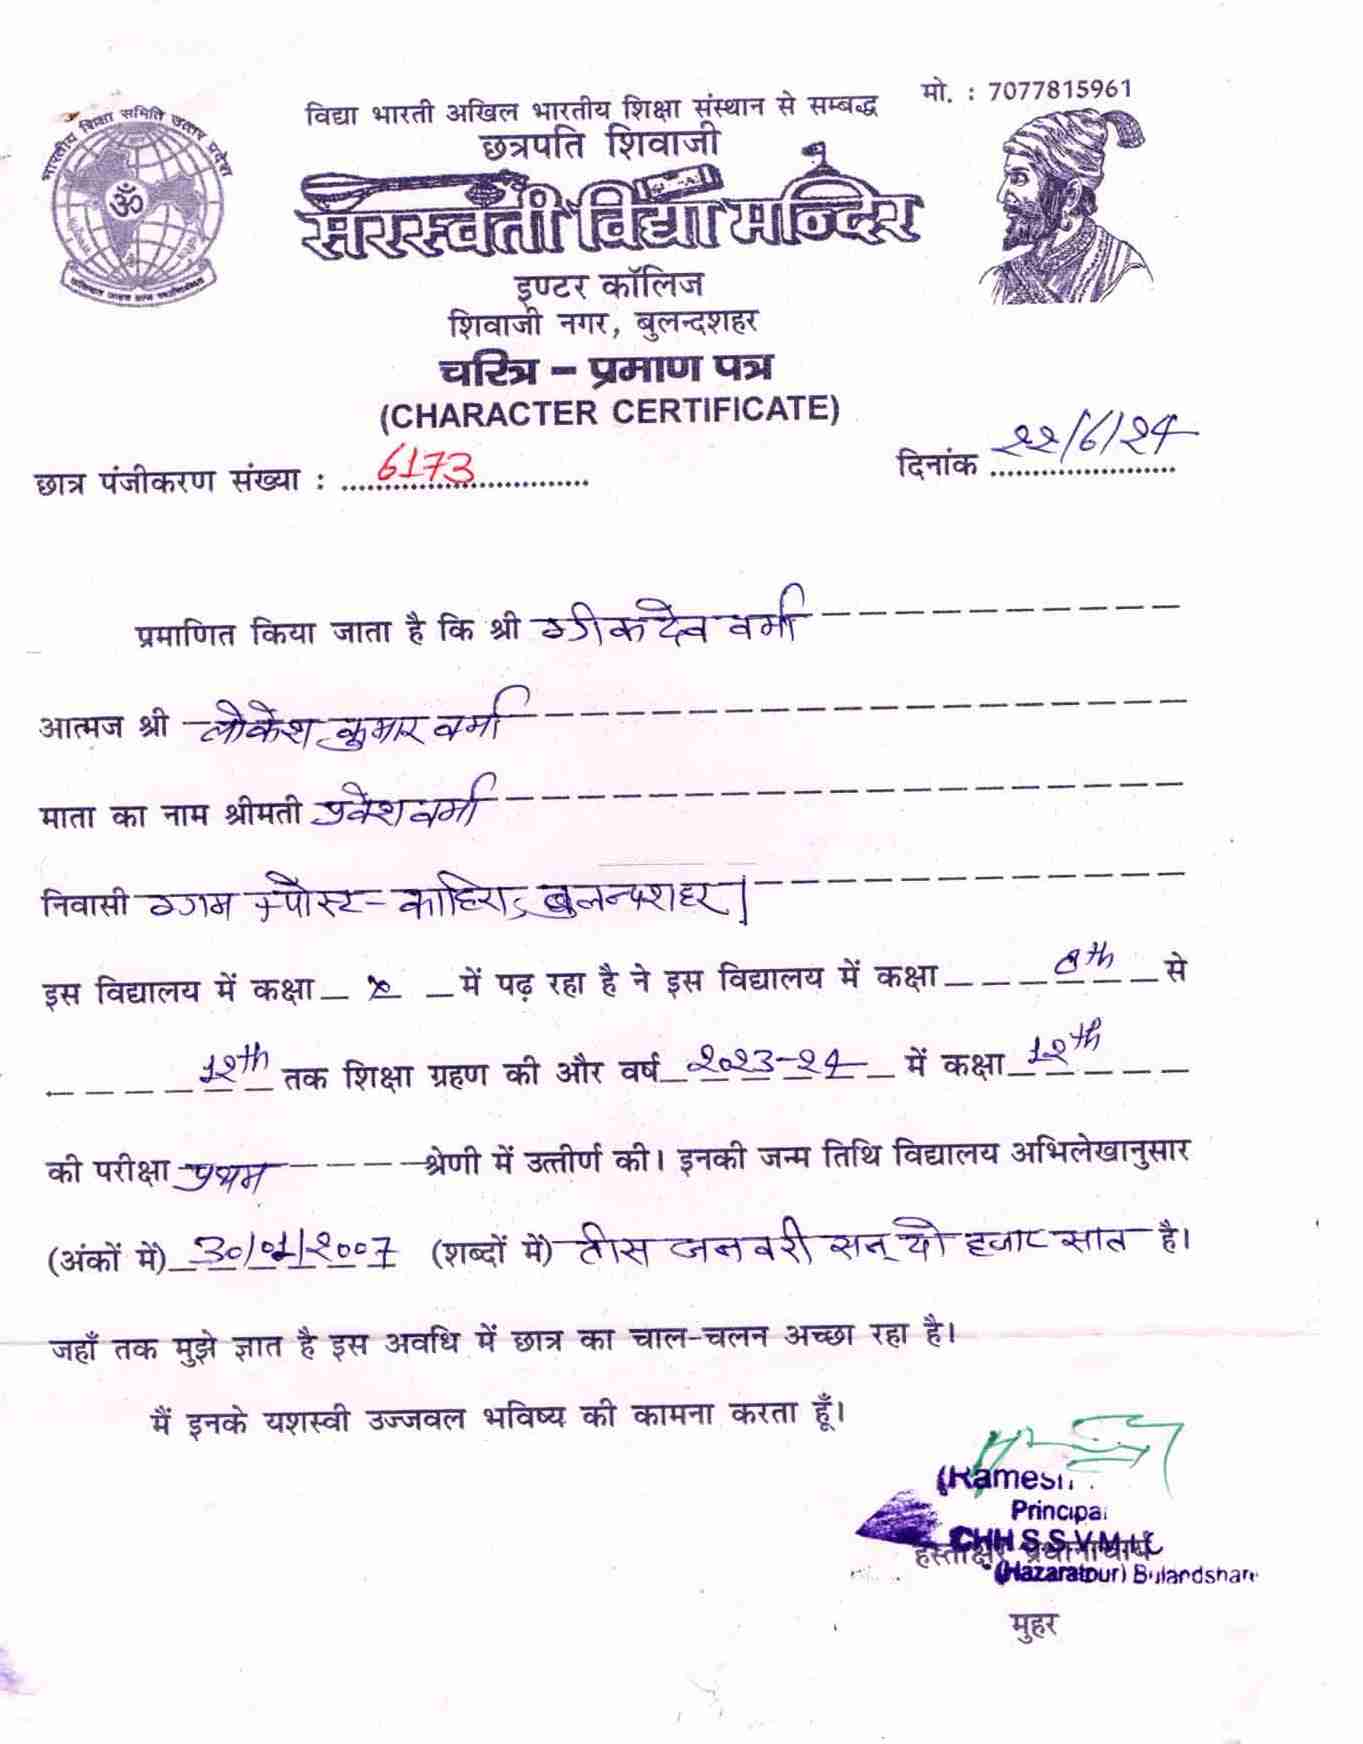 मो. : 7077815961
विद्या भारती अखिल भारतीय शिक्षा संस्थान से सम्बद्ध
भारतीय शिक्षा समिति उत्तर प्रदेश
छत्रपति शिवाजी
सरस्वती विद्या मन्दिर
इण्टर कॉलिज
शिवाजी नगर, बुलन्दशहर
चरित्र – प्रमाण पत्र
(CHARACTER CERTIFICATE)
छात्र पंजीकरण संख्या : 6173 दिनांक 22/6/24
प्रमाणित किया जाता है कि श्री देव वर्मा
आत्मज श्री लोकेश कुमार वर्मा
माता का नाम श्रीमती वर्मा
निवासी ग्राम + पोस्ट - काहिरा, बुलन्दशहर।
इस विद्यालय में कक्षा × में पढ़ रहा है ने इस विद्यालय में कक्षा 8th से
12th तक शिक्षा ग्रहण की और वर्ष 2023-24 में कक्षा 12th
की परीक्षा प्रथम श्रेणी में उत्तीर्ण की। इनकी जन्म तिथि विद्यालय अभिलेखानुसार
(अंकों में) 30/01/2007 (शब्दों में) तीस जनवरी सन् दो हजार सात है।
जहाँ तक मुझे ज्ञात है इस अवधि में छात्र का चाल-चलन अच्छा रहा है।
मैं इनके यशस्वी उज्जवल भविष्य की कामना करता हूँ।
(Ramesh
Principal
CHH S.S.V.M.I.C
हस्ताक्षर प्रधानाचार्य
(Hazaratpur) Bulandshahr
मुहर